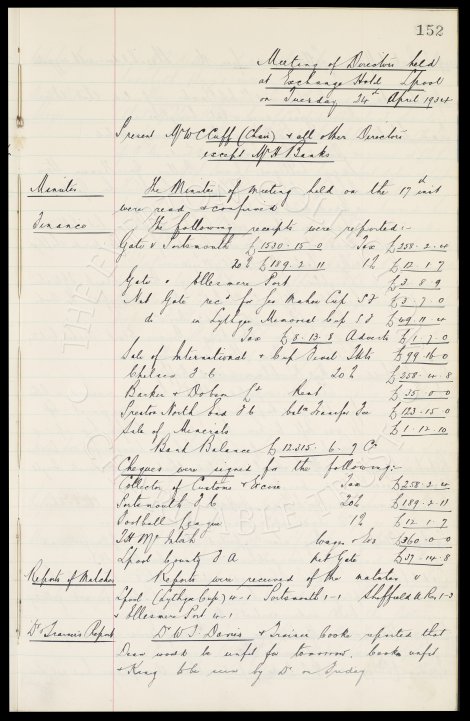 152
Meeting of Directors held
at Exchange Hotel L'pool
on Tuesday 24th April 1934
Present Mr W C Cuff (Chair) & all other Directors
except Mr H Banks
Minutes
The Minutes of meeting held on the 17th inst
were read & confirmed
Finance
The following receipts were reported:-
Gate v Portsmouth £1530.15.0 Tax £258.2.4
20% £189.2.11 1% £12.1.7
Gate v Ellesmere Port £3.8.9
Net Gate recd for Geo Mahon Cup S F £3.7.0
do in Lythgoe Memorial Cup S F £49.11.4
Tax £8.13.8 Adverts £1.7.0
Sale of International & Cup Final Tkts £99.16.0
Chelsea F C 20% £258.4.8
Barker & Dobson Ld Rent £35.0.0
Preston North End F C Transfer Fee £123.15.0
Sale of Minerals £1.12.10
Bank Balance £12,315.6.9 Cr
Cheques were signed for the following:-
Collector of Customs & Excise Tax £258.2.4
Portsmouth F C 20% £189.2.11
Football League 1% £12.1.7
T H McIntosh Wages £360.0.0
L'pool County F A Net Gate £37.14.8
Reports of Matches
Reports were received of the matches v
L'pool (Lythgoe Cup) 4-1 Portsmouth 1-1 Sheffield W Res 1-3
& Ellesmere Port 4-1
Dr & Trainers Report
Dr W J Davis & Trainer Cooke reported that
Dean would be unfit for tomorrow. unfit
& King to be seen by Dr on Friday